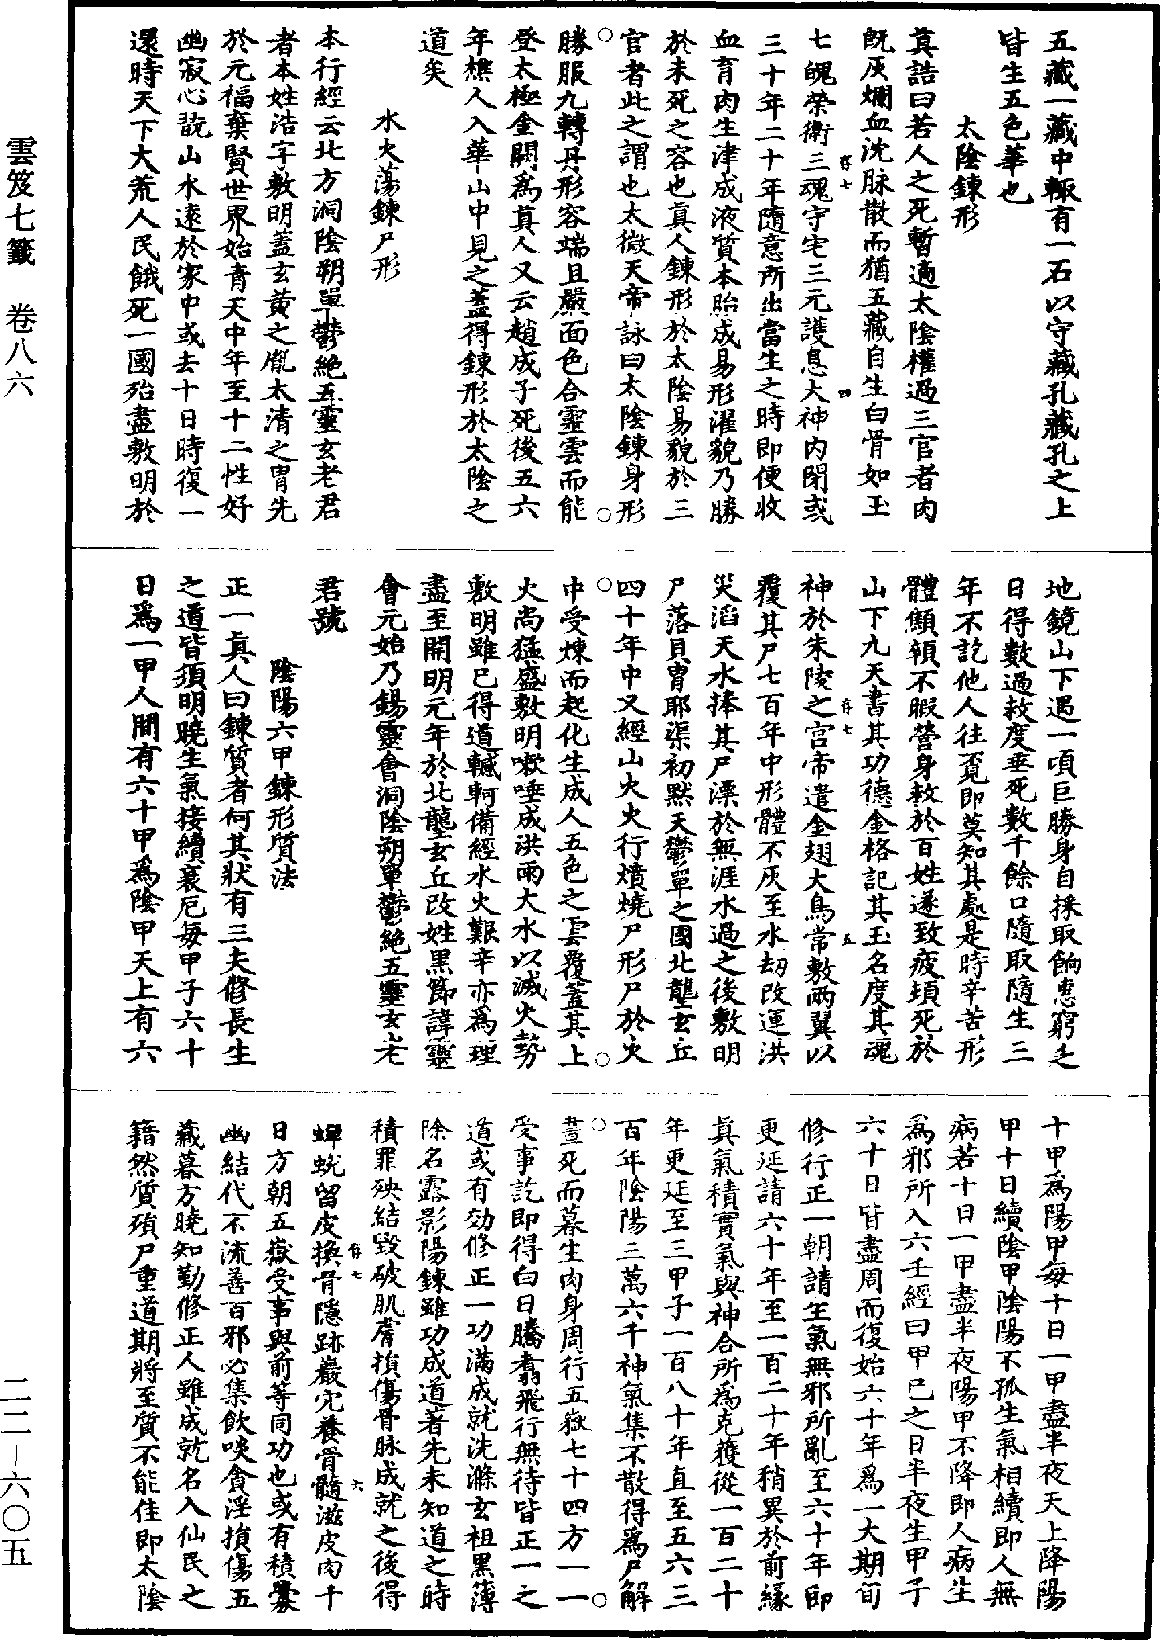 雲笈七籤　卷八六
二二－六〇五
五藏一藏中輒有一石以守藏孔藏孔之上
皆生五色華也
太陰鍊形
真誥曰若人之死暫適太陰權過三官者肉
既灰爛血沈脉散而猶五藏自生白骨如玉
七魄榮衛三魂守宅三元護息大神内閉或
三十年二十年隨意所出當生之時即便收
血育肉生津成液質本胎成易形濯貌乃勝
於未死之容也真人鍊形於太陰易貌於三
官者此之謂也太微天帝詠曰太陰鍊身形
勝服九轉丹形容端且嚴面色合靈雲而能
登太極金闕爲真人又云趙成子死後五六
年樵人入華山中見之蓋得鍊形於太陰之
道矣
水火蕩鍊尸形
本行經云北方洞陰朔單鬱絶五靈玄老君
者本姓浩字敷明蓋玄黄之胤太清之胄先
於元福棄賢世界始青天中年至十二性好
幽寂心翫山水遠於家中或去十日時復一
還時天下大荒人民餓死一國殆盡敷明於
地鏡山下遇一項巨勝身自採取餉惠窮乏
日得數過救度垂死數千餘口隨取隨生三
年不訖他人往覓即莫知其處是時辛苦形
體顦顇不暇營身救於百姓遂致疲頓死於
山下九天書其功德金格記其玉名度其魂
神於朱陵之宫帝遣金翅大鳥常敷兩翼以
覆其尸七百年中形體不灰至水劫改運洪
災滔天水捧其尸漂於無涯水過之後敷明
尸落貝胄耶渠初默天鬱單之國北壟玄丘
四十年中又經山火火行燌燒尸形尸於火
中受煉而起化生成人五色之雲覆蓋其上
火尚猛盛敷明嗽唾成洪雨大水以滅火勢
敷明雖已得道轗軻備經水火艱辛亦爲理
盡至開明元年於北壟玄丘改姓黑節諱靈
會元始乃錫靈會洞陰朔單鬱絶五靈玄老
君號
陰陽六甲鍊形質法
正一真人曰鍊質者何其狀有三夫修長生
之道皆須明曉生氣接續衰厄每甲子六十
日爲一甲人間有六十甲爲陰甲天上有六
十甲爲陽甲每十日一甲盡半夜天上降陽
甲十日續陰甲陰陽不孤生氣相續即人無
病若十日一甲盡半夜陽甲不降即人病生
爲邪所入六壬經曰甲已之日半夜生甲子
六十日皆盡周而復始六十年爲一大期旬
修行正一朝請生氣無邪所亂至六十年即
更延請六十年至一百二十年稍異於前緣
真氣積實氣與神合所爲克獲從一百二十
年更延至三甲子一百八十年直至五六三
百年陰陽三萬六千神氣集不散得爲尸解
晝死而暮生肉身周行五嶽七十四方一一
受事訖即得白日騰翥飛行無待皆正一之
道或有効修正一功滿成就洗滌玄祖黑簿
除名露影陽鍊雖功成道著先未知道之時
積罪殃結毀破肌膚損傷骨脉成就之後得
蟬蛻留皮換骨隱跡巖穴養骨髓滋皮肉千
日方朝五嶽受事與前等同功也或有積釁
幽結代不流善百邪必集飲啖貪淫損傷五
藏暮方曉知勤修正人雖成就名入仙民之
籍然質殞尸重道期將至質不能佳即太陰